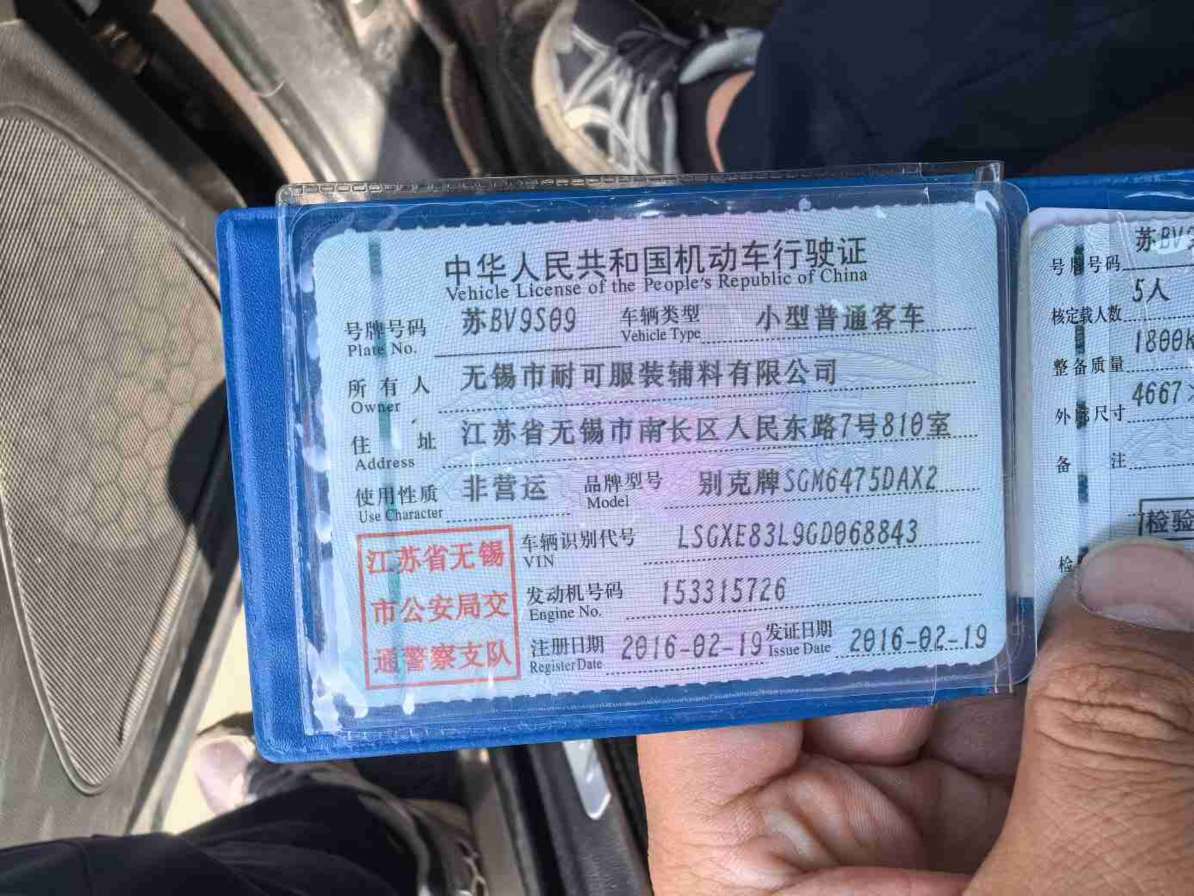 中华人民共和国机动车行驶证
Vehicle License of the People's Republic of China
号牌号码 苏BV9S09 车辆类型 小型普通客车
Plate No. Vehicle Type
所有人 无锡市耐可服装辅料有限公司
Owner
住址 江苏省无锡市南长区人民东路7号810室
Address
使用性质 非营运 品牌型号 别克牌SGM6475DAX2
Use Character Model
车辆识别代号 LSGXE83L9GD068843
VIN
发动机号码 153315726
Engine No.
注册日期 2016-02-19 发证日期 2016-02-19
Register Date Issue Date
江苏省无锡
市公安局交
通警察支队
号牌号码 苏BV9
核定载人数 5人
整备质量 1800k
外廓尺寸 4667×
备注
检验
检